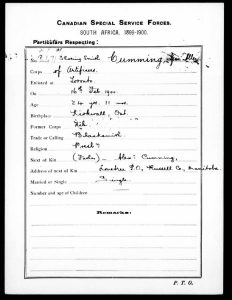 CANADIAN SPECIAL SERVICE FORCES.
SOUTH AFRICA, 1899-1900.
Particulars Respecting:
Cumming,
Corps of Artificers
Enlisted at Toronto
On 16th Feb 1900
Age 24 yrs. 11 mos.
Birthplace Ont.
Former Corps Nil.
Trade or Calling Blacksmith
Religion Presby
Next of Kin (Father) Alex: Cumming,
Address of next of Kin P.O., Russell Co, Manitoba
Married or Single Single
Number and age of Children
Remarks:
P. T. O.